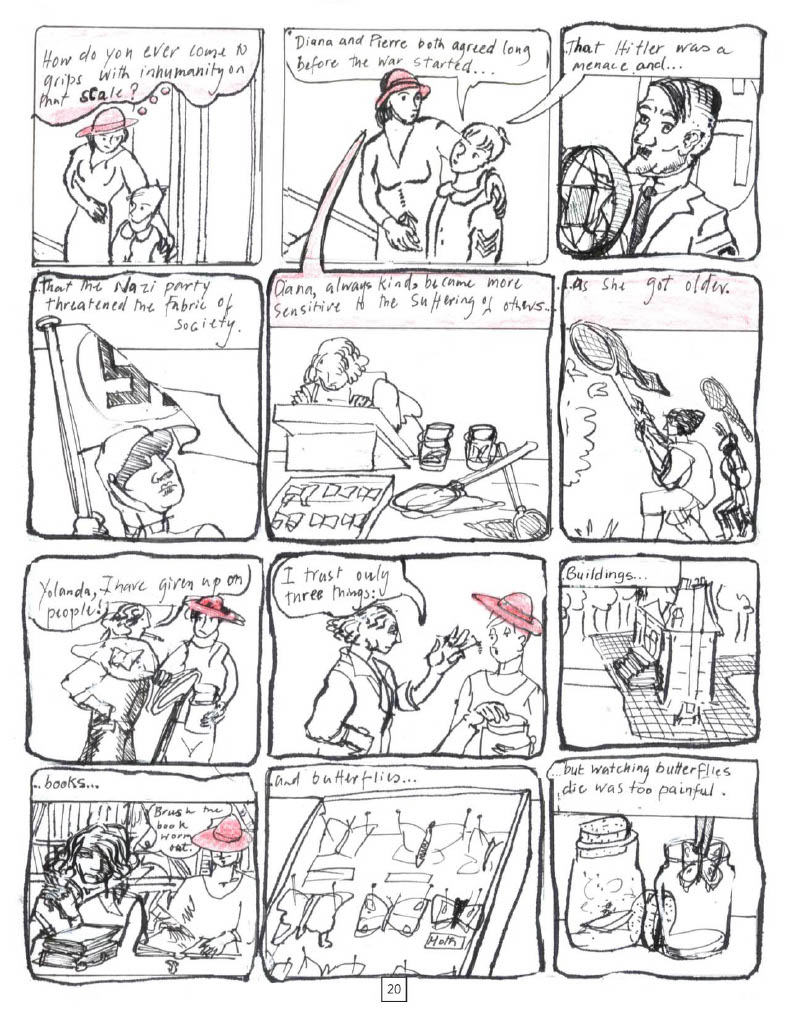 How do you ever come to
grips with inhumanity on
that scale?
Diana and Pierre both agreed long
before the war started...
...That Hitler was a
menace and...
...that the Nazi party
threatened the fabric of
society.
Diana, always kind, became more
sensitive to the suffering of others...
...as she got older.
Yolanda, I have given up on
people!
I trust only
three things:
Buildings...
...books...
Brush the
book
worm
out.
...and butterflies...
Moth
...but watching butterflies
die was too painful.
20